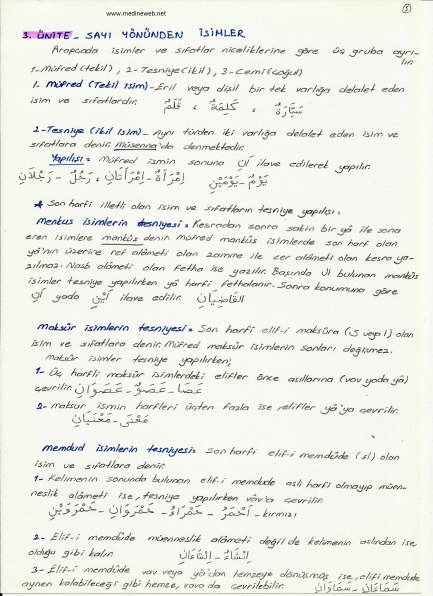 www.medineweb.net
5
3. ÜNİTE - SAYI YÖNÜNDEN İSİMLER
Arapçada isimler ve sıfatlar niceliklerine göre üç gruba ayrılır.
1-Müfred (tekil), 2-Tesniye (ikil), 3-Cemi (çoğul)
1. Müfred (Tekil isim)- Eril veya dişil bir tek varlığa delalet eden
isim ve sıfatlardır. سَيَّارَةٌ ، كَلِمَةٌ ، قَلَمٌ
2-Tesniye (ikil isim)- Aynı türden iki varlığa delalet eden isim ve
sıfatlara denir. Müsenna'da denmektedir.
Yapılışı= Müfred ismin sonuna انِ ilave edilerek yapılır.
يَوْمٌ - يَوْمَيْنِ إِمْرَأَةٌ - إِمْرَأَتَانِ ، رَجُلٌ - رَجُلَانِ
* Son harfi illetli olan isim ve sıfatların tesniye yapılışı=
menkus isimlerin tesniyesi= Kesradan sonra sakin bir yâ ile sona
eren isimlere mankûs denir. Müfred mankûs isimlerde son harf olan
yâ'nın üzerine ref alâmeti olan zamme ile cer alâmeti olan kesra ya-
zılmaz. Nasb alâmeti olan fetha ise yazılır. Başında ال bulunan mankûs
isimler tesniye yapılırken yâ harfi fethalanır. Sonra konumuna göre
انِ yada يْنِ ilave edilir. القَاضِيَانِ
maksûr isimlerin tesniyesi= Son harfi elif-i maksûra (ى veya ا) olan
isim ve sıfatlara denir. Müfred maksûr isimlerin sonları değişmez.
maksûr isimler tesniye yapılırken;
1- üç harfli maksûr isimlerdeki elifler önce asıllarına (vav yada yâ)
çevrilir. عَصَا - عَصَوٌ - عَصَوَانِ
2- maksur ismin harfleri üçten fazla ise, elifler yâ'ya çevrilir.
مَعْنَى - مَعْنَيَانِ
memdud isimlerin tesniyesi= Son harfi elif-i memdûde (اء) olan
isim ve sıfatlara denir.
1- Kelimenin sonunda bulunan elif-i memdude asli harfi olmayıp müen-
neslik alâmeti ise, tesniye yapılırken vav'a çevrilir.
أَحْمَرُ - حَمْرَاءُ - حَمْرَوَانِ - حَمْرَوَيْنِ - kırmızı
2- Elif-i memdûde müenneslik alâmeti değil de kelimenin aslından ise
olduğu gibi kalır. إِنْشَاءٌ - إِنْشَاءَانِ
3- Elif-i memdûde vav veya yâ'dan hemzeye dönüşmüş ise, elifi memdude
aynen kalabileceği gibi hemze, vava da çevrilebilir. سَمَاءَانِ - سَمَاوَانِ